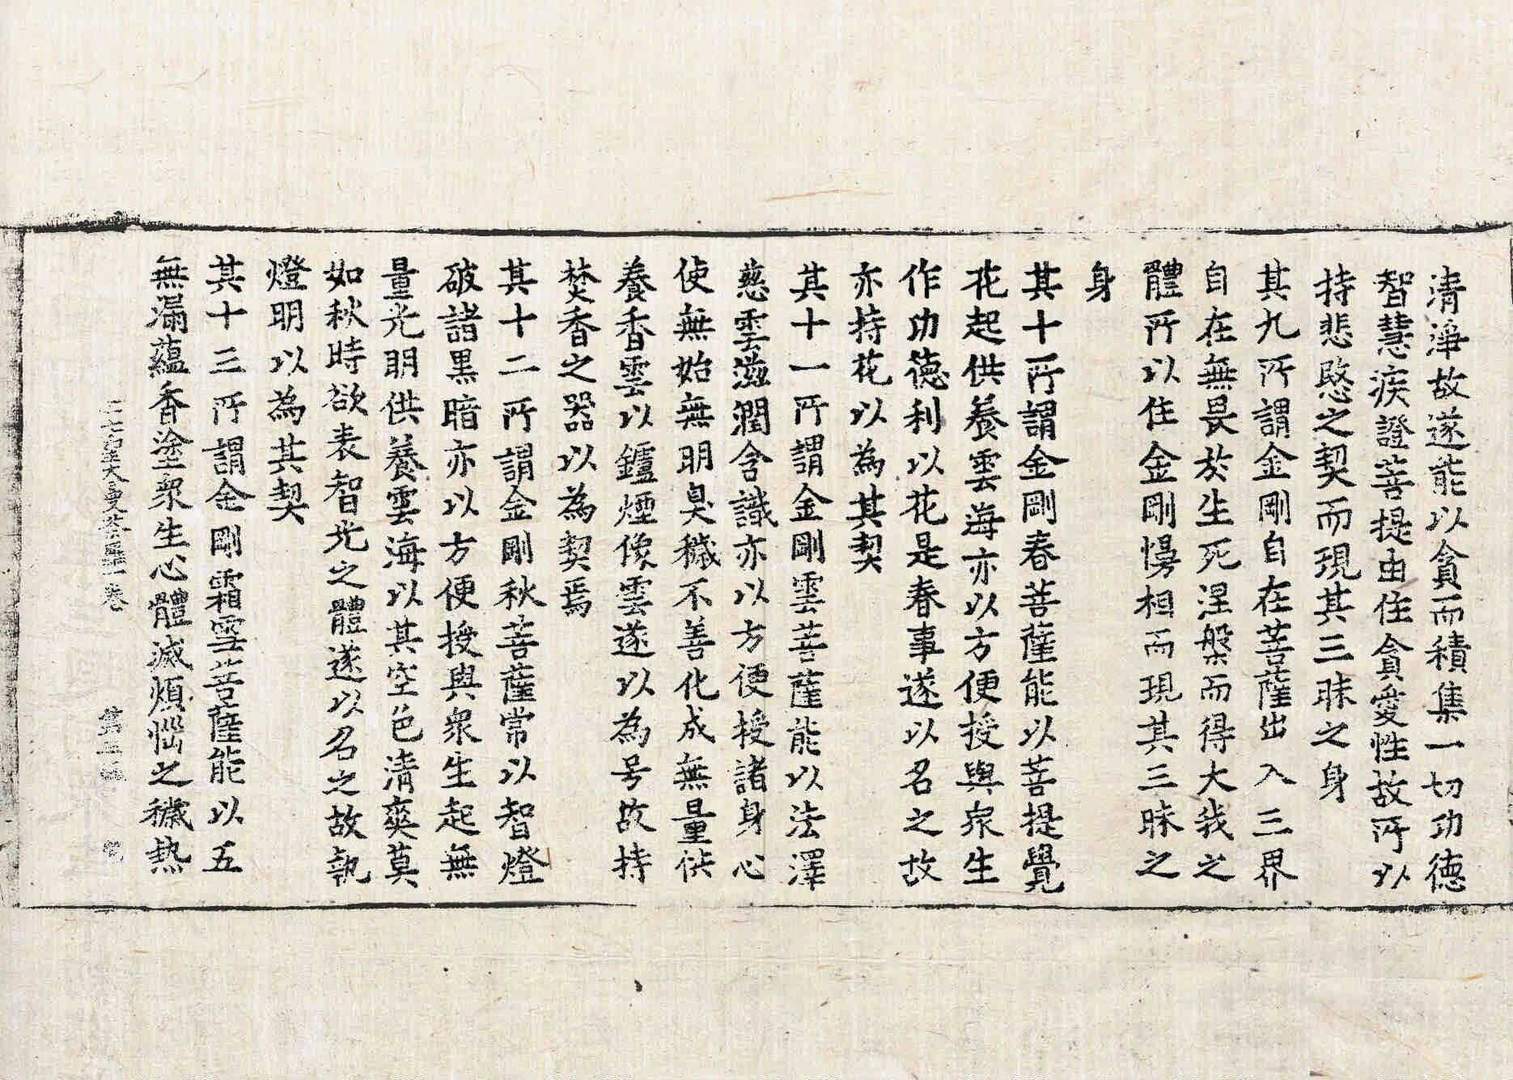 清淨故遂能以貪而積集一切功德
智慧疾證菩提由住貪愛性故所以
持悲愍之契而現其三昧之身
其九所謂金剛自在菩薩出入三界
自在無畏於生死涅槃而得大我之
體所以住金剛慢相而現其三昧之
身
其十所謂金剛春菩薩能以菩提覺
花起供養雲海亦以方便授與眾生
作功德利以花是春事遂以名之故
亦持花以為其契
其十一所謂金剛雲菩薩能以法澤
慈雲滋潤含識亦以方便授諸身心
使無始無明臭穢不善化成無量供
養香雲以鑪煙像雲遂以為号故持
焚香之器以為契焉
其十二所謂金剛秋菩薩常以智燈
破諸黑暗亦以方便授與眾生起無
量光明供養雲海以其空色清爽莫
如秋時欲表智光之體遂以名之故執
燈明以為其契
其十三所謂金剛霜雪菩薩能以五
無漏蘊香塗眾生心體滅煩惱之穢熱
十七聖大曼荼羅一卷 第五 號